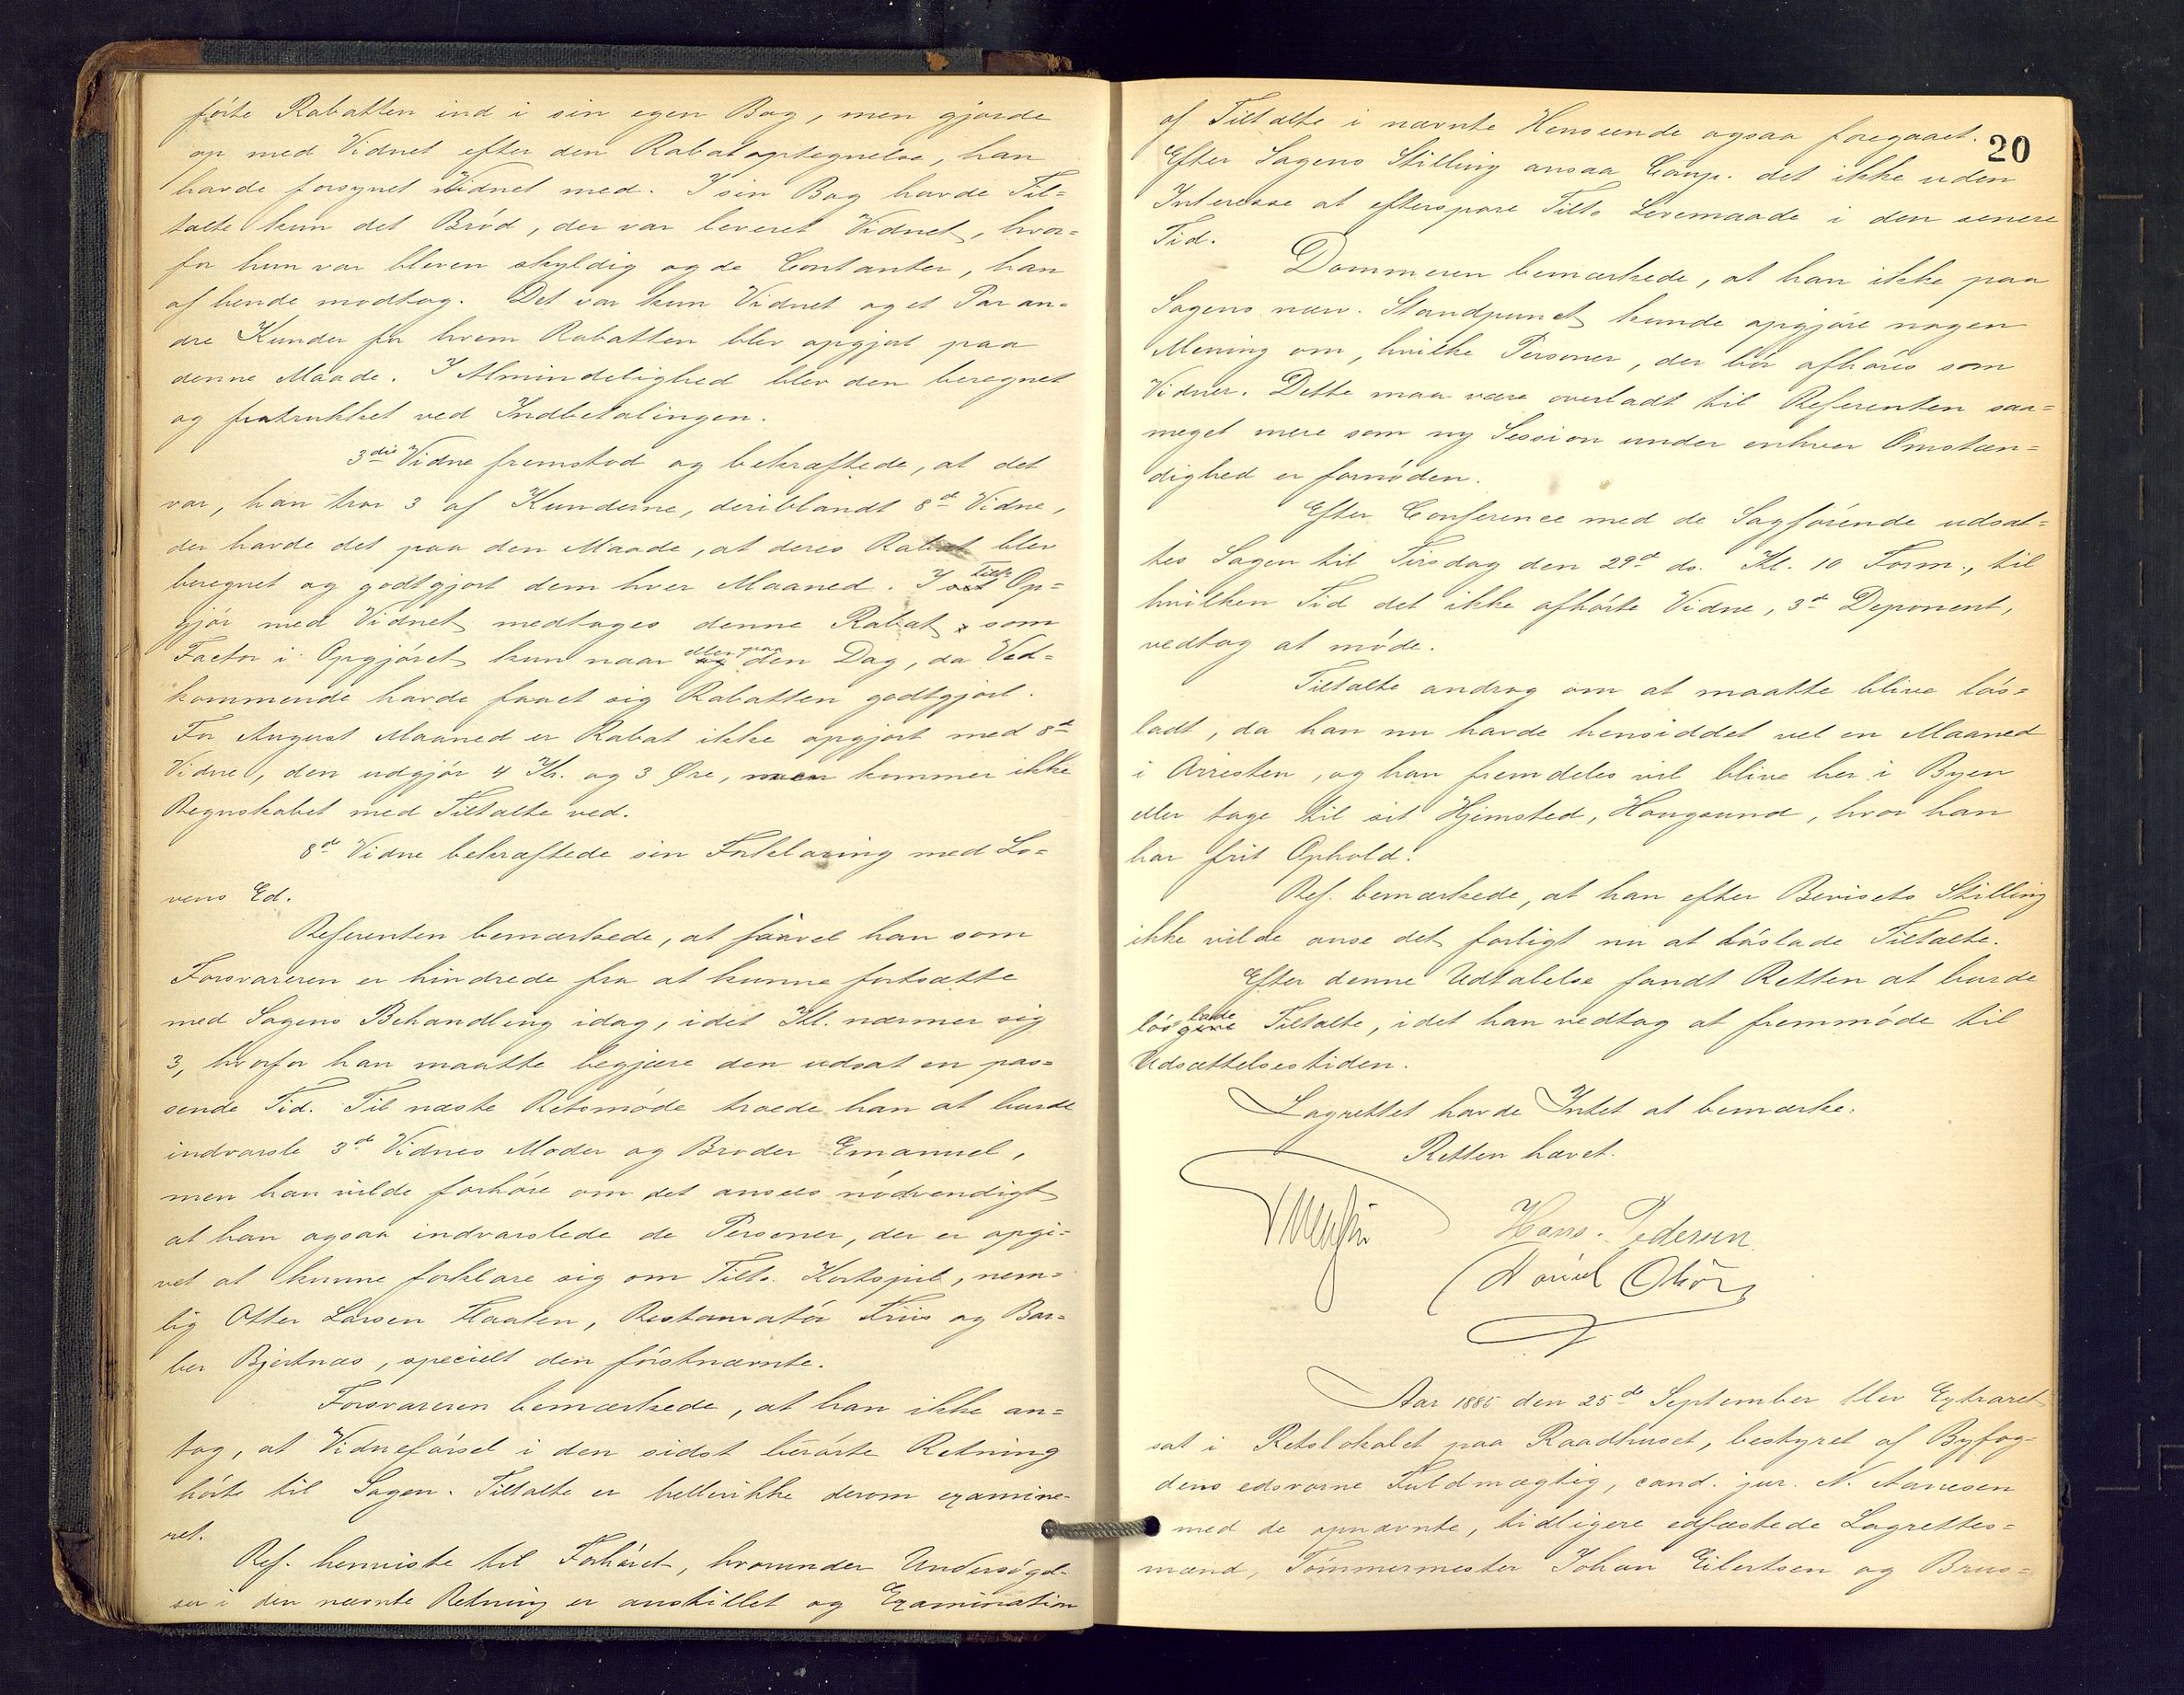 førte Rabatten ind i sin egen Bog, men gjorde
op med Vidnet efter den Rabatoptegnelse, han
havde forsynet Vidnet med. I sin Bog havde Til=
talte kun det Brød, der var leveret Vidnet, hvor=
for hun var bleven skyldig og de Contanter, han
af hende modtog. Det var kun Vidnet og et Par an=
dre Kunder for hvem Rabatten blev opgjort paa
denne Maade. I Almindelighed blev den beregnet
og fratrukket ved Indbetalingen.
3die Vidne fremstod og bekræftede, at det
var, han tror 3 af Kunderne, deriblandt 8de Vidne,
der havde det paa den Maade, at deres Rabat blev
beregnet og godtgjort dem hver Maaned. I Tilts Op=
gjør med Vidnet medtoges denne Rabat som
Factor i Opgjøret kun naar eller paa den Dag, da Ved=
kommende havde faaet sig Rabatten godtgjort.
For August Maaned er Rabat ikke opgjort med 8de
Vidne, den udgjør 4 Kr. og 3 Øre, men kommer ikke
Regnskabet med Tiltalte ved.
8de Vidne bekræftede sin Forklaring med Lo=
vens Ed.
Referenten bemærkede, at saavel han som
Forsvareren er hindrede fra at kunne fortsætte
med Sagens Behandling idag, idet Kl. nærmer sig
3, hvorfor han maatte begjære den udsat en pas=
sende Tid. Til næste Retsmøde troede han at burde
indvarsle 3die Vidnes Moder og Broder Emanuel,
men han vilde forhøre om det ansees nødvendigt
at han ogsaa indvarslede de Personer, der er opgi=
vet at kunne forklare sig om Tilts. Kortspil, nem=
lig Otter Larsen Flaaten, Restauratør Friis og Bar=
ber Bjertnæs, specielt den førstnævnte.
Forsvareren bemærkede, at han ikke an=
tog, at Vidneførsel i den sidst berørte Retning
hørte til Sagen. Tiltalte er hellerikke derom examine=
ret.
Ref. henviste til Forhøret, hvorunder Undersøgel=
ser i den nævnte Retning er anstillet og Examination
20
af Tiltalte i nævnte Henseende ogsaa foregaaet.
Efter Sagens Stilling ansaa Comp. det ikke uden
Interesse at efterspore Tilts Levemaade i den senere
Tid.
Dommeren bemærkede, at han ikke paa
Sagens nærv. Standpunct kunde opgjøre nogen
Mening om, hvilke Personer, der bør afhøres som
Vidner. Dette maa være overladt til Referenten saa=
meget mere som ny Session under enhver Omstæn=
dighed er fornøden.
Efter Conference med de Sagførende udsat=
tes Sagen til Tirsdag den 29de ds. Kl. 10 Form., til
hvilken Tid det ikke afhørte Vidne, 3die Deponent,
vedtog at møde.
Tiltalte androg om at maatte blive løs=
ladt, da han nu havde hensiddet vel en Maaned
i Arresten, og han fremdeles vil blive her i Byen
eller tage til sit Hjemsted, Haugsund, hvor han
har frit Ophold.
Ref. bemærkede, at han efter Bevisets Stilling
ikke vilde anse det farligt nu at løslade Tiltalte.
Efter denne Udtalelse fandt Retten at burde
løslade Tiltalte, idet han vedtog at fremmøde til
Udsættelsestiden.
Lagrettet havde Intet at bemærke.
Retten hævet.
Hans. Pedersen
Aar 1885 den 25de September blev Extraret
sat i Retslokalet paa Raadhuset, bestyret af Byfog=
dens edsvorne Fuldmægtig, cand. jur. N. Aanesen
med de opnævnte, tidligere edfæstede Lagrettes=
mænd, Tømmermester Johan Eilertsen og Brus=